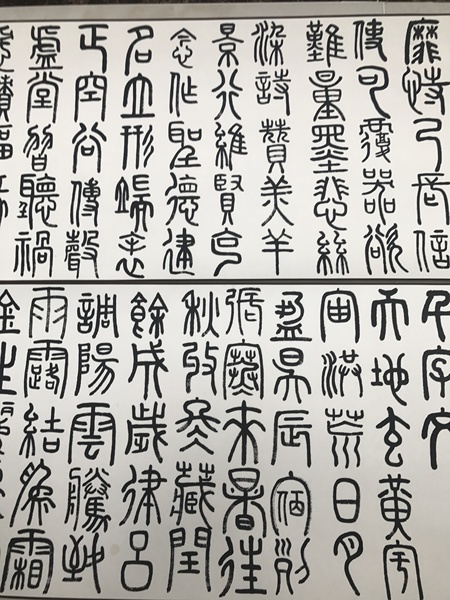 靡恃己長信
使可覆器欲
難量墨悲絲
染詩贊羔羊
景行維賢克
念作聖德建
名立形端表
正空谷傳聲
虛堂習聽禍
惡積福緣
千字文
天地玄黃宇
宙洪荒日月
盈昃辰宿列
張寒來暑往
秋收冬藏閏
餘成歲律呂
調陽雲騰致
雨露結為霜
金生麗水